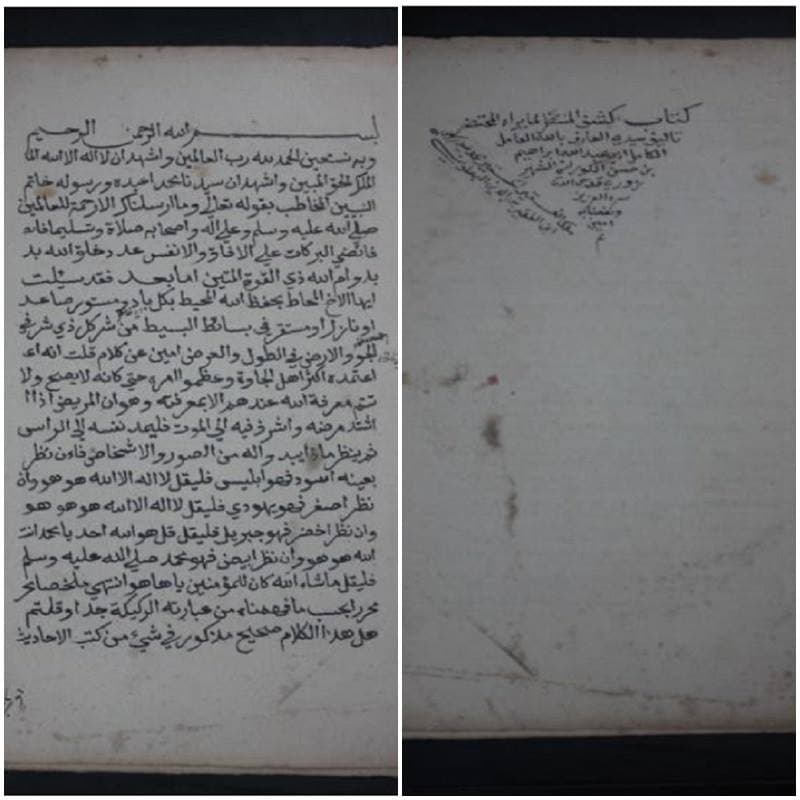 كتاب كشف المنتظر لما يراه المحتضر
تاليف سيدي العارف بالله العامل
الكامل ابي عبد الله ابراهيم
بن حسن الكوراني الشهير
قدس الله
سره العزيز
ونفعنا به
امين
تم
بسم الله الرحمن الرحيم
وبه نستعين الحمد لله رب العالمين واشهد ان لا اله الا الله الما
الملك الحق المبين واشهد ان سيدنا محمدا عبده ورسوله خاتم
النبيين المخاطب بقوله تعالى وما ارسلناك الا رحمة للعالمين
صلى الله عليه وسلم وعلى اله واصحابه صلاة وتسليما فا
فائضي البركات على الافاق والانفس عدد خلق الله بد
بدوام الله ذي القوة المتين اما بعد فقد سئلت
ايها الاخ المحاط بحفظ الله المحيط بكل باد ومستور صاعد
او نازل او مستقر في بسائط البسيط من شر كل ذي شر في
الجو والارض في الطول والعرض امين عن كلام قلت انه اع
اعتمده اكثر اهل الجاوة وعظموا امره حتى كانه لا يصح ولا
تتم معرفة الله عندهم الا بمعرفته وهو ان المريض اذا ا
اشتد مرضه واشرف فيه الى الموت فليمد نفسه الى الراس
ثم ينظر ماذا يبدو له من الصور والاشخاص فان نظر
بعينه اسود فهو ابليس فليقل لا اله الا الله هو هو وان
نظر اصفر فهو يهودي فليقل لا اله الا الله هو هو هو
وان نظر اخضر فهو جبريل فليقل قل هو الله احد يا محمد انت
الله هو هو وان نظر ابيض فهو محمد صلى الله عليه وسلم
فليقل ما شاء الله كان للمؤمنين يا ها هو انتهى ملخصا محر
محررا بحسب ما فهمناه من عبارته الركيكة جدا وقلتم
هل هذا الكلام صحيح مذكور في شيء من كتب الاحاديث